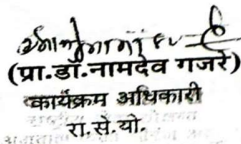 (प्रा.डॉ.नामदेव गजरे)
कार्यक्रम अधिकारी
रा.से.यो.